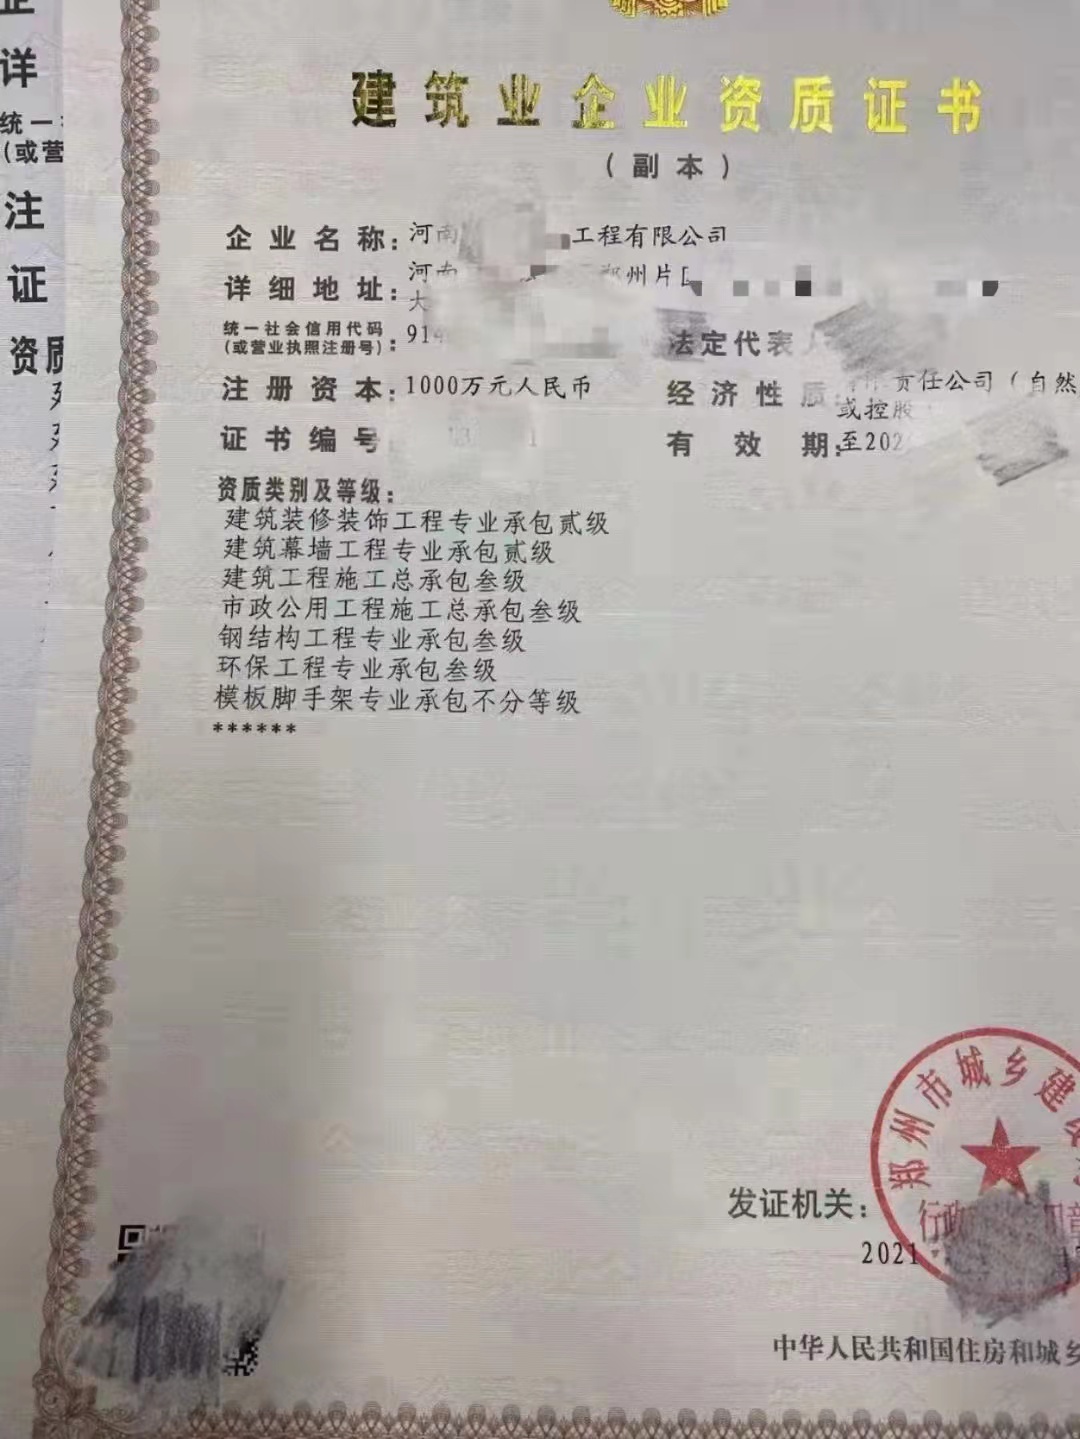 企
详
统一
(或营
注
证
资质
建筑业企业资质证书
(副本)
企业名称:河南 工程有限公司
详细地址:河南 郑州片区
大
统一社会信用代码
(或营业执照注册号):914
法定代表人
注册资本:1000万元人民币
经济性质: 责任公司(自然
或控股
证书编号
有效期:至202
资质类别及等级:
建筑装修装饰工程专业承包贰级
建筑幕墙工程专业承包贰级
建筑工程施工总承包叁级
市政公用工程施工总承包叁级
钢结构工程专业承包叁级
环保工程专业承包叁级
模板脚手架专业承包不分等级
******
郑州市城乡建
行政 章
发证机关:
2021
中华人民共和国住房和城乡